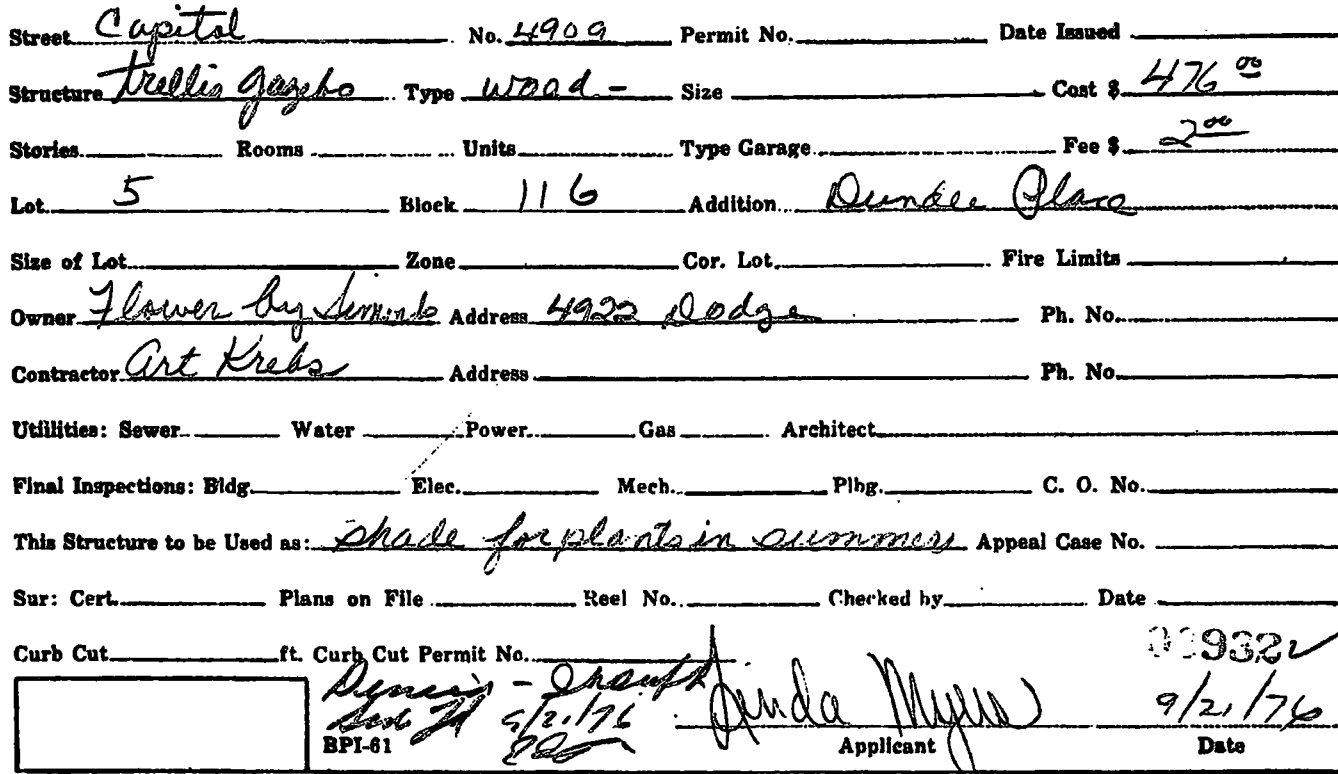 Street Capitol No. 4909 Permit No. Date Issued
Structure trellis gazebo Type wood - Size Cost $ 476 00
Stories Rooms Units Type Garage Fee $ 2 00
Lot 5 Block 116 Addition Dundee Place
Size of Lot Zone Cor. Lot Fire Limits
Owner Flower by Address 4922 Dodge Ph. No.
Contractor Art Krebs Address Ph. No.
Utilities: Sewer Water Power Gas Architect
Final Inspections: Bldg. Elec. Mech. Plbg. C. O. No.
This Structure to be Used as: shade for plants in summer Appeal Case No.
Sur: Cert. Plans on File Reel No. Checked by Date
Curb Cut ft. Curb Cut Permit No.
9/21/76 Linda Myers 9/21/76
BPI-61 Applicant Date